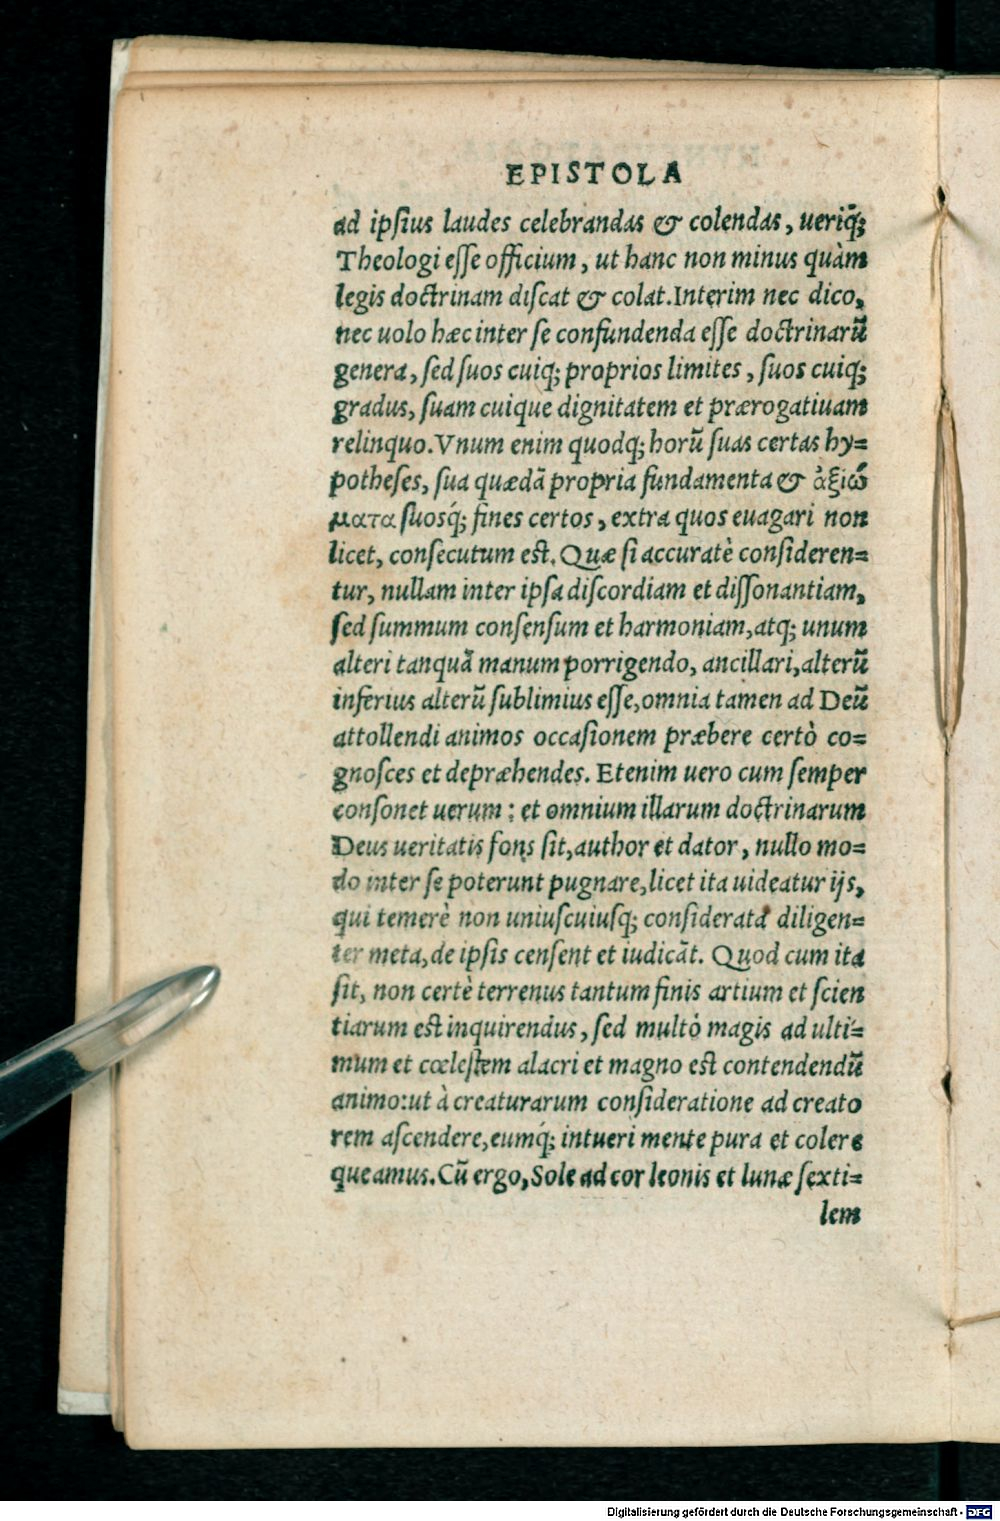 EPISTOLA
ad ipſius laudes celebrandas & colendas, ueriq́;
Theologi eſſe officium, ut hanc non minus quàm
legis doctrinam diſcat & colat. Interim nec dico,
nec uolo hæc inter ſe confundenda eſſe doctrinarũ
genera, ſed ſuos cuiq; proprios limites, ſuos cuiq;
gradus, ſuam cuique dignitatem et prærogatiuam
relinquo. Vnum enim quodq; horũ ſuas certas hy=
potheſes, ſua quædã propria fundamenta & ἀξιώ
ματα ſuosq́; fines certos, extra quos euagari non
licet, conſecutum eſt. Quæ ſi accuratè conſideren=
tur, nullam inter ipſa diſcordiam et diſſonantiam,
ſed ſummum conſenſum et harmoniam, atq; unum
alteri tanquã manum porrigendo, ancillari, alterũ
inferius alterũ ſublimius eſſe, omnia tamen ad Deũ
attollendi animos occaſionem præbere certò co=
gnoſces et depræhendes. Etenim uero cum ſemper
conſonet uerum: et omnium illarum doctrinarum
Deus ueritatis fons ſit, author et dator, nullo mo=
do inter ſe poterunt pugnare, licet ita uideatur ijs,
qui temerè non uniuſcuiuſq; conſiderata diligen=
ter meta, de ipſis cenſent et iudicãt. Quod cum ita
ſit, non certè terrenus tantum finis artium et ſcien
tiarum eſt inquirendus, ſed multò magis ad ulti=
mum et cœleſtem alacri et magno eſt contendendũ
animo: ut à creaturarum conſideratione ad creato
rem aſcendere, eumq́; intueri mente pura et colere
queamus. Cũ ergo, Sole ad cor leonis et lunæ ſexti=
lem
Digitalisierung gefördert durch die Deutsche Forschungsgemeinschaft - DFG